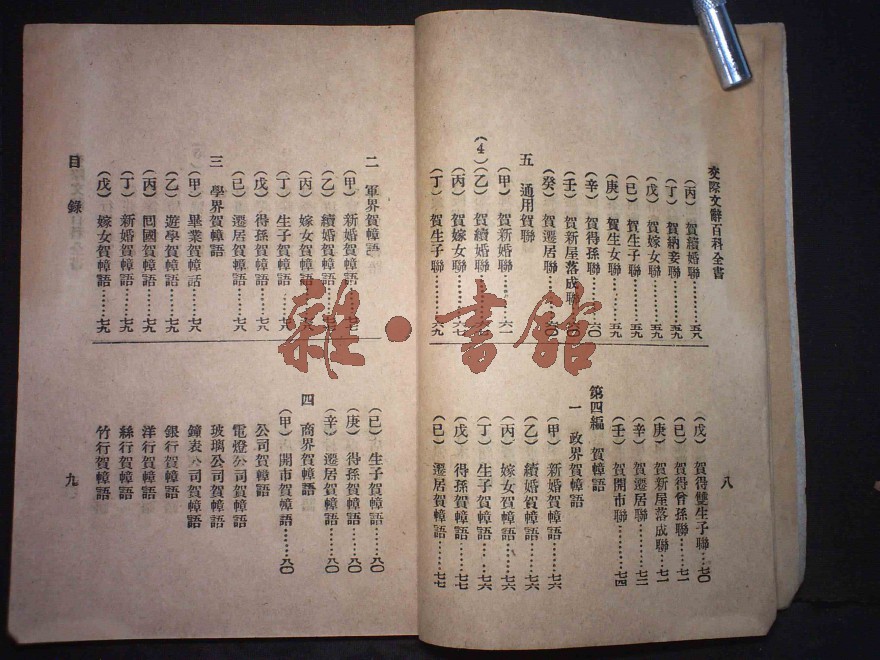 交際文辭百科全書
八
(丙)賀續婚聯……五八
(丁)賀納妾聯……五九
(戊)賀嫁女聯……五九
(己)賀生子聯……五九
(庚)賀生女聯……五九
(辛)賀得孫聯……六〇
(壬)賀新屋落成聯……六〇
(癸)賀遷居聯……六〇
五 通用賀聯
(甲)賀新婚聯……六一
(4)
(乙)賀續婚聯……六
(丙)賀嫁女聯……六七
(丁)賀生子聯……六九
(戊)賀得雙生子聯……七〇
(己)賀得曾孫聯……七一
(庚)賀新屋落成聯……七一
(辛)賀遷居聯……七二
(壬)賀開市聯……七四
第四編 賀幛語
一 政界賀幛語
(甲)新婚賀幛語……七六
(乙)續婚賀幛語……七六
(丙)嫁女賀幛語……七六
(丁)生子賀幛語……七六
(戊)得孫賀幛語……七七
(己)遷居賀幛語……七七
二 軍界賀幛語
(甲)新婚賀幛語……七七
(乙)續婚賀幛語
(丙)嫁女賀幛語……七八
(丁)生子賀幛語……七八
(戊)得孫賀幛語……七八
(己)遷居賀幛語……七八
三 學界賀幛語
(甲)畢業賀幛話……七八
(乙)遊學賀幛語……七九
(丙)囘國賀幛語……七九
(丁)新婚賀幛語……七九
(戊)嫁女賀幛語……七九
目錄
九
(己)生子賀幛語……八〇
(庚)得孫賀幛語……八〇
(辛)遷居賀幛語……八〇
四 商界賀幛語
(甲)開市賀幛語……八〇
公司賀幛語
電燈公司賀幛語
玻璃公司賀幛語
鐘表公司賀幛語
銀行賀幛語
洋行賀幛語
絲行賀幛語
竹行賀幛語
雜·書館